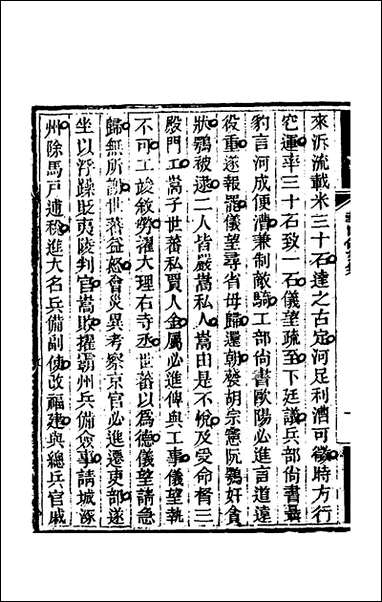 來泝流載米三十石達之古定河足利漕可徵時方行
空運率三十石致一石儀望疏至下廷議兵部尚書聶
豹言河成便漕兼制敵騎工部尚書歐陽必進言道遠
役重遂報罷儀望尋省母歸還朝發胡宗憲阮鶚奸貪
狀鶚被逮二人皆嚴嵩私人嵩由是不悅及受命督三
殿門工嵩子世蕃私賈人金屬必進俾與工事儀望執
不可工竣敘勞擢大理右寺丞世蕃以為德儀望請急
歸無所謝世蕃益怒會災異考察京官必進遷吏部遂
坐以浮躁貶夷陵判官嵩敗擢霸州兵備僉事請城涿
州除馬戶逋稅進大名兵備副使改福建與總兵官戚